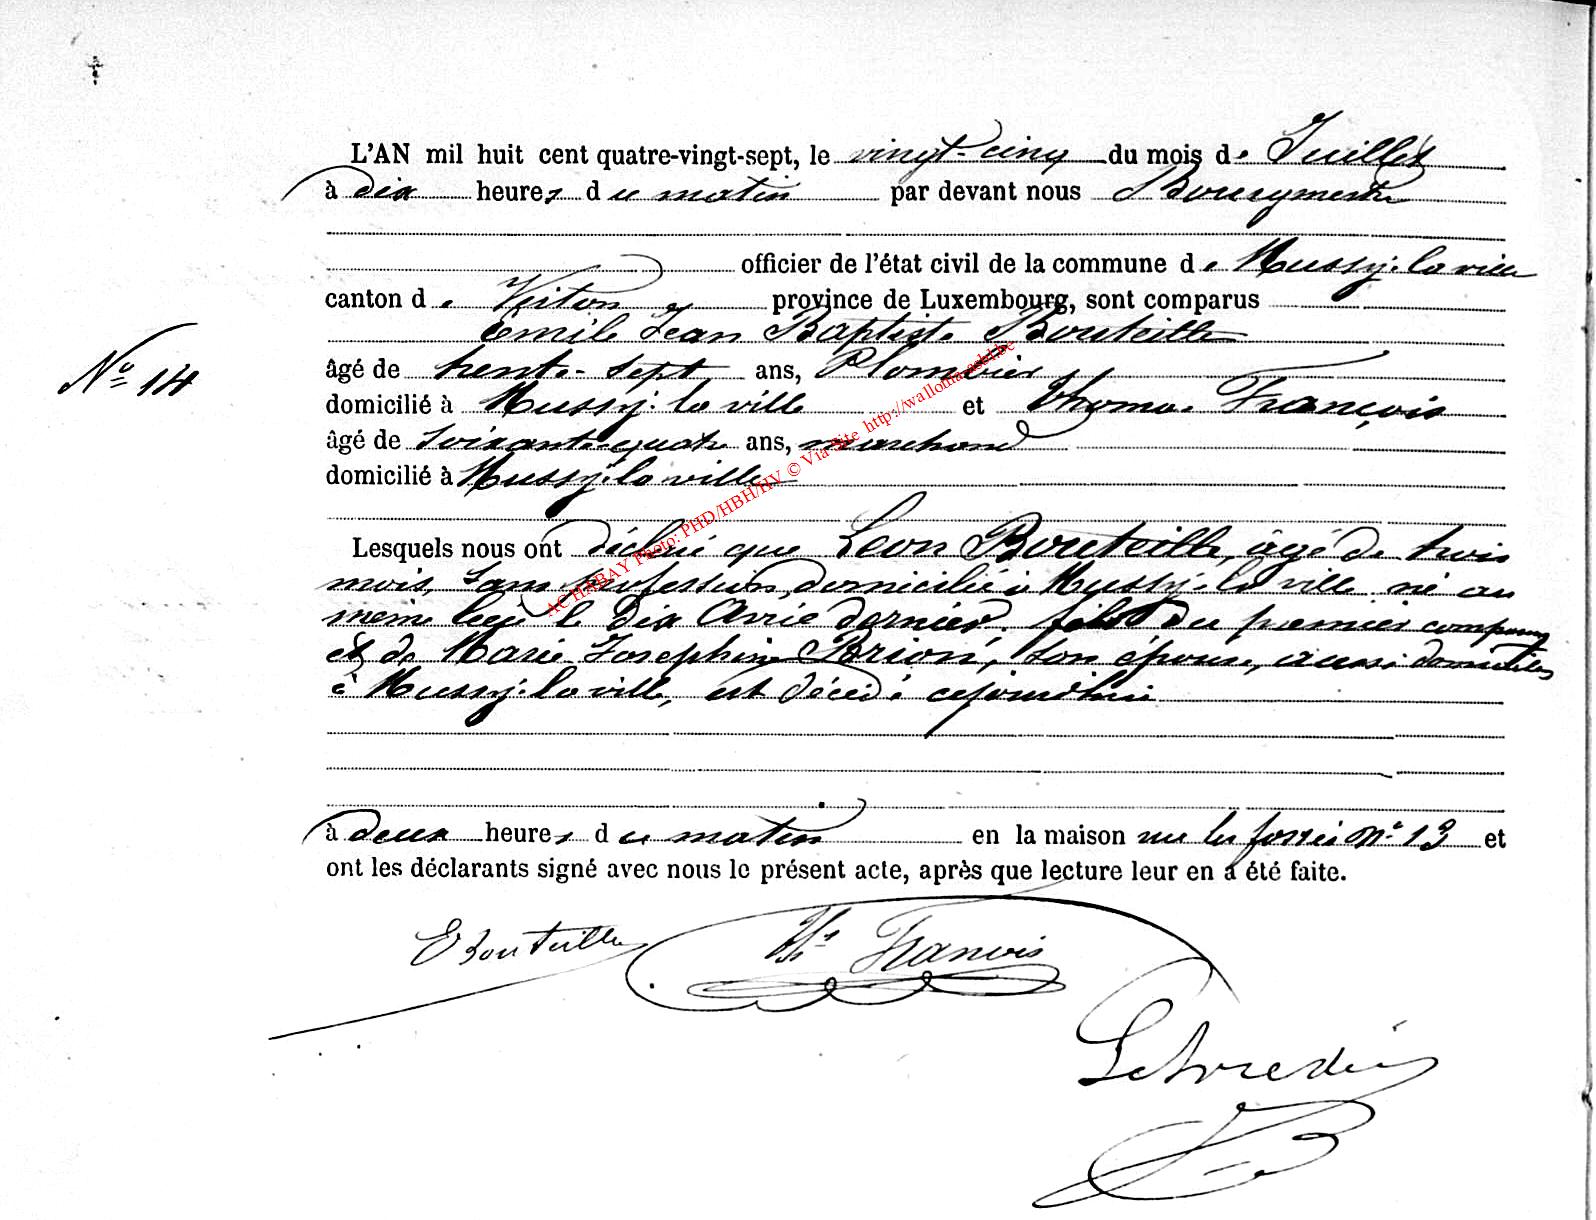 L'AN mil huit cent quatre-vingt-sept, le vingt-cinq du mois de Juillet
à dix heures du matin par devant nous Bourgmestre
officier de l'état civil de la commune de Mussy-la ville
canton de Virton province de Luxembourg, sont comparus
Emile Jean Baptiste Bouteille
âgé de trente-sept ans, Plombier
N° 14
domicilié à Mussy-la ville et Thomas François
âgé de soixante-quatre ans, marchand
domicilié à Mussy-la ville
AC HABAY Photo: PHD/HBH/HV © Via Site http://wallonia-asbl.be
Lesquels nous ont déclaré que Léon Bouteille, âgé de trois
mois, sans profession, domicilié à Mussy-la ville, né au
même lieu le dix Avril dernier, fils du premier comparant
et de Marie Josephine Brion, son épouse, aussi domiciliés
à Mussy-la ville, est décédé cejourd'hui
à deux heures du matin en la maison rue les fossés N° 13 et
ont les déclarants signé avec nous le présent acte, après que lecture leur en a été faite.
EBouteille Th^s François